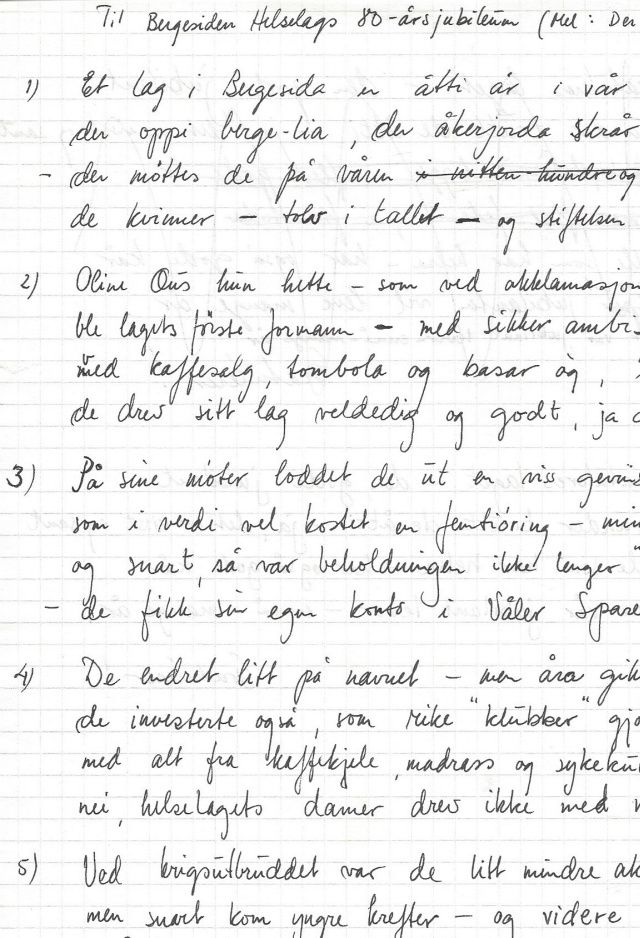 Til Bergesiden Helselags 80-årsjubileum (Mel: Der
1) Et lag i Bergesida er åtti år i vår
der oppi berge-lia, der åkerjorda skrår
- der møttes de på våren i nitten-hundre og
de kvinner - tolv i tallet - og stiftelsen
2) Oline Ous hun hette - som ved akklamasjon
ble lagets første formann - med sikker ambis
med kaffesalg, tombola og basar òg,
de drev sitt lag veldedig og godt, ja
3) På sine møter loddet de ut en viss gevins
som i verdi vel kostet en femtiøring - min
og snart, så var beholdningen ikke lenger "
- de fikk sin egen konto i Våler Spare
4) De endret litt på navnet - men åra gik
de investerte også, som rike "klubber" gjø
med alt fra kaffekjele, madrass og sykeku
nei, helselagets damer drev ikke med
5) Ved krigsutbruddet var de litt mindre ak
men snart kom yngre krefter - og videre